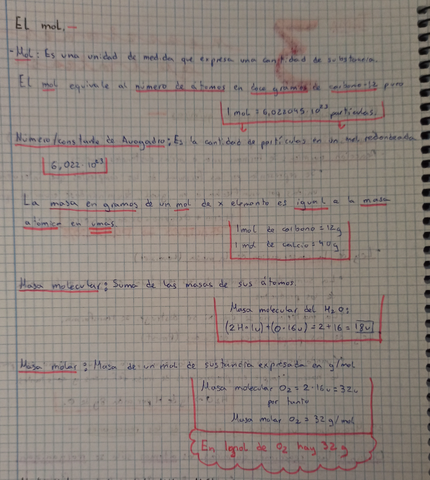 El mol.-
- Mol: Es una unidad de medida que expresa una cantidad de sustancia.
El mol equivale al número de átomos en doce gramos de carbono-12 puro
1 mol = 10²³ partículas.
Número/constante de Avogadro: Es la cantidad de partículas en un mol, redondeada
6,022·10²³
La masa en gramos de un mol de x elemento es igual a la masa
atómica en umas.
1 mol de carbono = 12g
1 mol de calcio = 40g
Masa molecular: Suma de las masas de sus átomos.
Masa molecular del H₂O:
(2H·1u)+(O·16u)=2+16=18u
Masa molar: Masa de un mol de sustancia expresada en g/mol
Masa molecular O₂ = 2·16u = 32u
por tanto
Masa molar O₂ = 32 g/mol
En 1 mol de O₂ hay 32 g